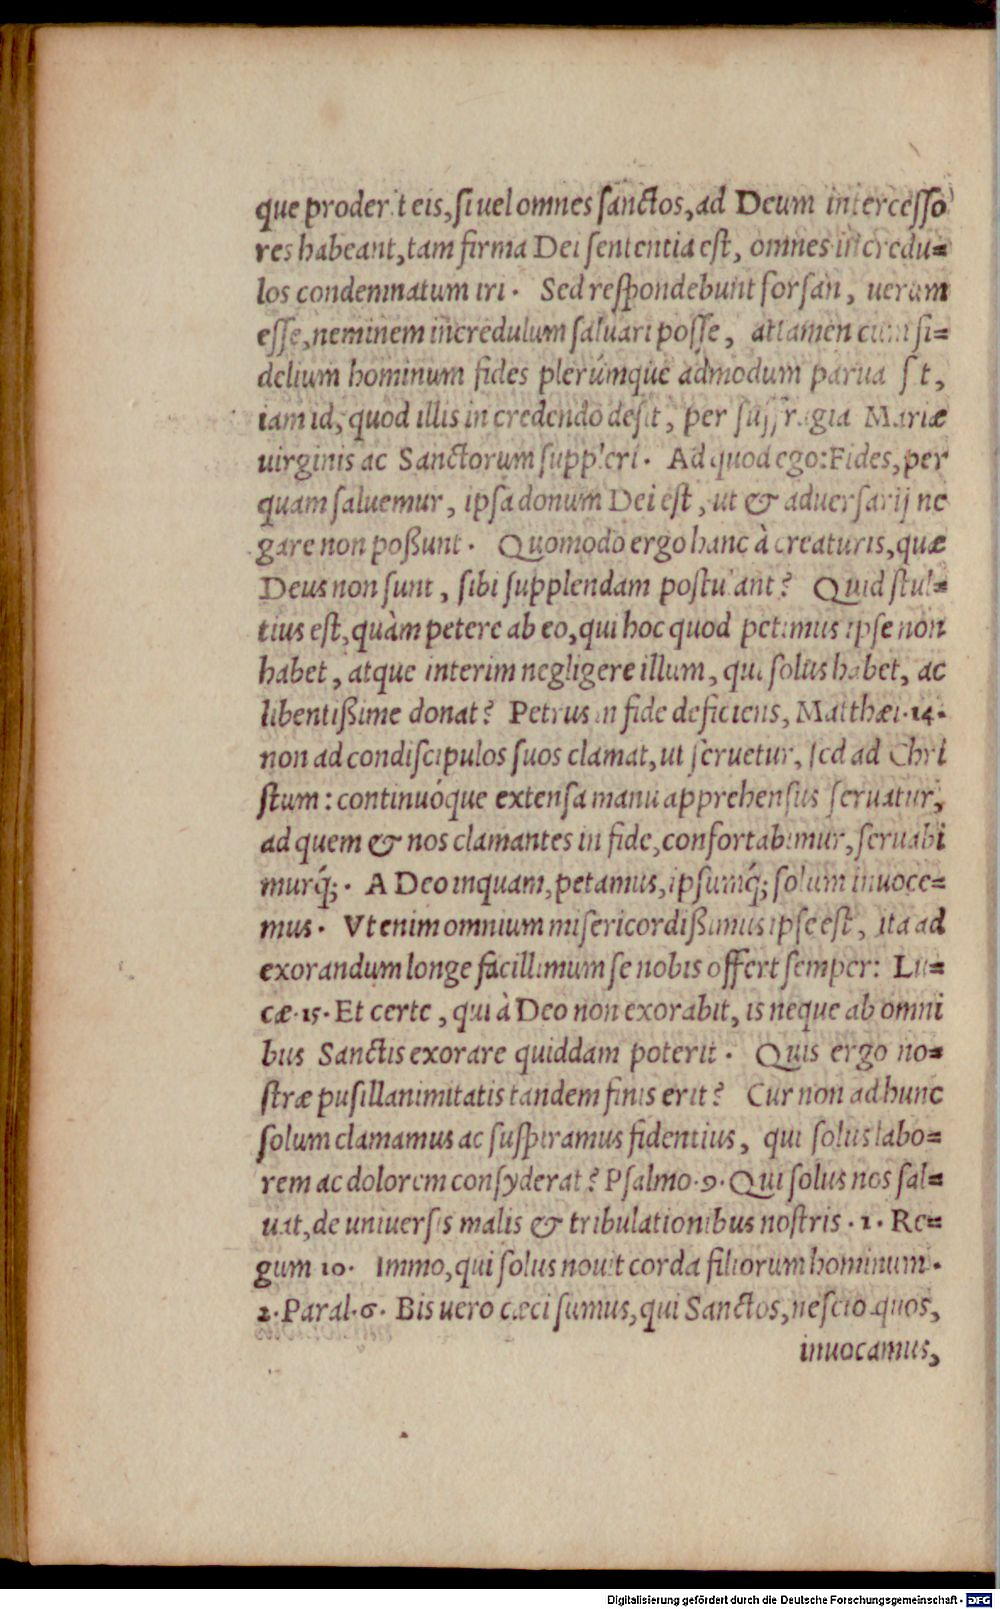 que proderit eis, si uel omnes sanctos, ad Deum intercesso
res habeant, tam firma Dei sententia est, omnes incredu=
los condemnatum iri. Sed respondebunt forsan, uerum
esse, neminem incredulum saluari posse, attamen cum fi=
delium hominum fides plerúmque admodum parua sit,
iam id, quod illis in credendo desit, per suffragia Mariæ
uirginis ac Sanctorum suppleri. Ad quod ego: Fides, per
quam saluemur, ipsa donum Dei est, ut & aduersarij ne
gare non poßunt. Quomodo ergo hanc à creaturis, quæ
Deus non sunt, sibi supplendam postulant? Quid stul=
tius est, quàm petere ab eo, qui hoc quod petimus ipse non
habet, atque interim negligere illum, qui solus habet, ac
libentißime donat? Petrus in fide deficiens, Matthæi.14.
non ad condiscipulos suos clamat, ut seruetur, sed ad Chri
stum: continuóque extensa manu apprehensus seruatur,
ad quem & nos clamantes in fide, confortabimur, seruabi
murq́;. A Deo inquam, petamus, ipsumq́; solum inuoce=
mus. Vt enim omnium misericordißimus ipse est, ita ad
exorandum longe facillimum se nobis offert semper: Lu=
cæ.15. Et certe, qui à Deo non exorabit, is neque ab omni
bus Sanctis exorare quiddam poterit. Quis ergo no=
stræ pusillanimitatis tandem finis erit? Cur non ad hunc
solum clamamus ac suspiramus fidentius, qui solus labo=
rem ac dolorem consyderat? Psalmo.9. Qui solus nos sal=
uat, de uniuersis malis & tribulationibus nostris. 1. Re=
gum 10. Immo, qui solus nouit corda filiorum hominum.
2. Paral. 6. Bis uero cæci sumus, qui Sanctos, nescio quos,
inuocamus,
Digitalisierung gefördert durch die Deutsche Forschungsgemeinschaft - DFG